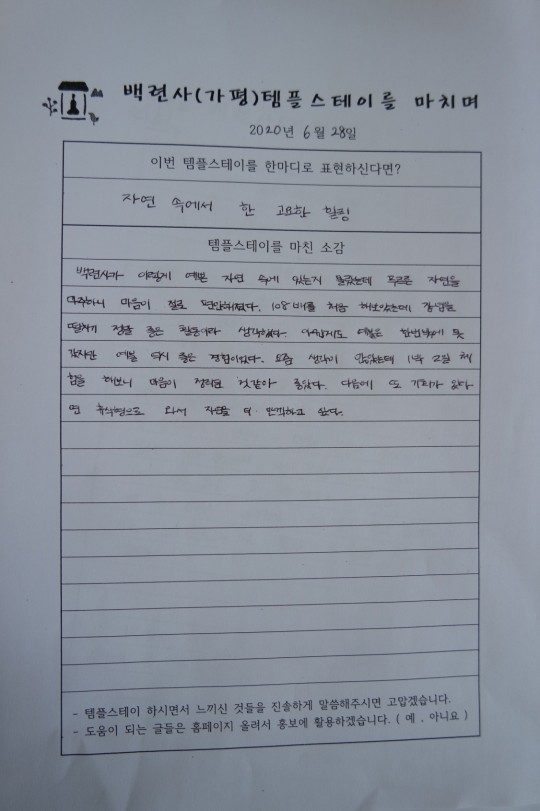 백련사(가평)템플스테이를 마치며
2020년 6월 28일
이번 템플스테이를 한마디로 표현하신다면?
자연 속에서 한 고요한 힐링
템플스테이를 마친 소감
백련사가 이렇게 예쁜 자연 속에 있는지 몰랐는데 푸르른 자연을
마주하니 마음이 절로 편안해졌다. 108배를 처음 해보았는데 잡념을
떨치기 정말 좋은 활동이라 생각했다. 아쉽게도 예불은 한번밖에 못
갔지만 예불 역시 좋은 경험이었다. 요즘 생각이 많았는데 1박 2일 체
험을 해보니 마음이 정리된 것같아 좋았다. 다음에 또 기회가 있다
면 휴식형으로 와서 자연을 더 만끽하고 싶다.
- 템플스테이 하시면서 느끼신 것들을 진솔하게 말씀해주시면 고맙겠습니다.
- 도움이 되는 글들은 홈페이지 올려서 홍보에 활용하겠습니다. ( 예 , 아니요 )